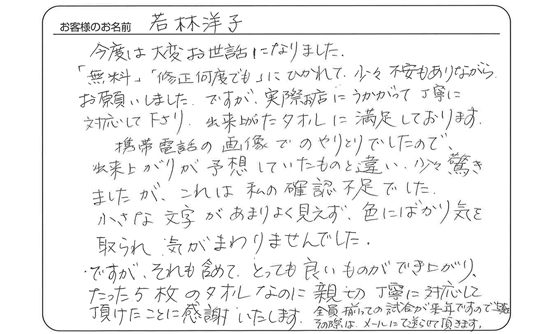 お客様のお名前 若林洋子
今度は大変お世話になりました.
「無料」「修正何度でも」にひかれて、少々不安もありながら
お願いしました. ですが、実際お店にうかがって丁寧に
対応して下さり、出来上がたタオルに満足しております.
携帯電話の画像でのやりとりでしたので、
出来上がりが予想していたものと違い、少々驚き
ましたが、これは私の確認不足でした.
小さな文字があまりよく見えず、色にばかり気を
取られ気がまわりませんでした.
・ですが、それも含めて、とっても良いものができ上がり、
たった5枚のタオルなのに親切丁寧に対応して
頂けたことに感謝いたします.
全員揃っての試合が来年ですので
その際は、メールにて送らせて頂きます.